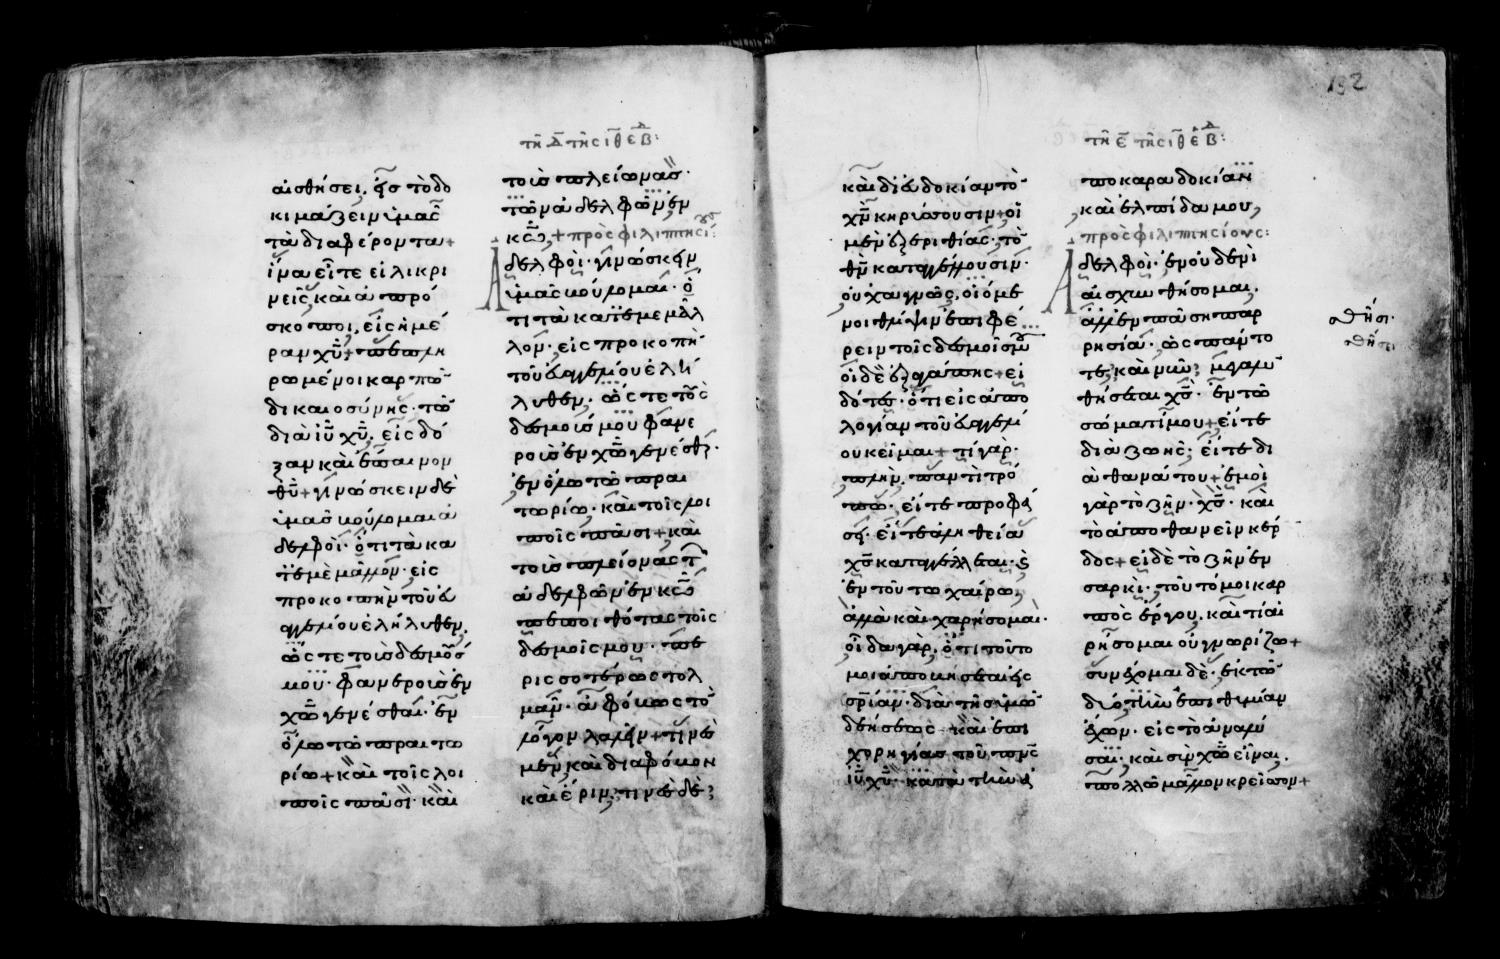 αἰσθήσει, εἰς τὸ δο
κιμάζειν ὑμᾶς
τὰ διαφέροντα +
ἵνα εἶτε εἰλικρι
νεῖς, καὶ ἀπρό
σκοποι, εἰς ἡμέ
ραν χῦ + πεπλη
ρωμένοι καρπὸν
δικαιοσύνης· τὸν
διὰ ἰῦ χῦ, εἰς δό
ξαν καὶ ἔπαινον
θῦ + γινώσκειν δὲ
ὑμᾶς βούλομαι ἀ
δελφοὶ· ὅτι τὰ κα
τ' ἐμὲ μᾶλλον· εἰς
προκοπὴν τοῦ εὐ
αγγελίου ἐλήλυθεν,
ὥστε τοὺς δεσμούς
μου· φανεροὺς ἐν
χῶ γενέσθαι· ἐν
ὅλω τῶ πραιτω
ρίω + καὶ τοῖς λοι
ποῖς πᾶσι· καὶ
τῆ δ τῆς ιθ εβδ:
τοὺς πλείονας·
τῶν ἀδελφῶν ἐν
κῶ, + πρὸς φιλιππησί:
Ἀδελφοὶ· γινώσκειν
ὑμᾶς βούλομαι· ὅ
τι τὰ κατ' ἐμὲ μᾶλ
λον· εἰς προκοπὴν
τοῦ εὐαγγελίου ἐλή
λυθεν· ὥστε τοὺς
δεσμούς μου φανε
ροὺς ἐν χῶ γενέσθαι·
ἐν ὅλω τῶ πραι
τωρίω· καὶ τοῖς λοι
ποῖς πᾶσι + καὶ
τοὺς πλείονας τῶν
ἀδελφῶν ἐν κῶ
πεποιθότας τοῖς
δεσμοῖς μου· πε
ρισσοτέρως τολ
μᾶν· ἀφόβως τὸν
λόγον λαλεῖν + τινὲς
μὲν καὶ διὰ φθόνον
καὶ ἔριν, τινὲς δὲ,
τῆ ε τῆς ιθ εβδ:
132
καὶ δι' εὐδοκίαν τὸν
χν κηρύσσουσιν + οἱ
μὲν ἐξ ἐριθείας· τὸν
χν καταγγέλλουσιν·
οὐχ ἁγνῶς, οἰόμε
νοι θλίψιν ἐπιφέ
ρειν τοῖς δεσμοῖς μου
οἱ δὲ ἐξ ἀγάπης + εἰ
δότες· ὅτι εἰς ἀπο
λογίαν τοῦ εὐαγγελί
ου κεῖμαι + τί γὰρ·
πλὴν, παντὶ τρό
πω· εἴτε προφά
σει· εἴτε ἀληθεία
χς καταγγέλλεται· καὶ
ἐν τούτω χαίρω,
ἀλλὰ καὶ χαρήσομαι·
οἶδα γὰρ, ὅτι τοῦτο
μοι ἀποβήσεται εἰς
σρίαν· διὰ τῆς ὑμῶν
δεήσεως + καὶ ἐπι
χορηγίας τοῦ πνς
ἰῦ χῦ· κατὰ τὴν ἀ
ποκαραδοκίαν
καὶ ἐλπίδα μου,
πρὸς φιλιππησίους:
Ἀδελφοὶ· ἐν οὐδενὶ
αἰσχυνθήσομαι,
ἀλλ' ἐν πάση παρ
ρησία· ὡς πάντο
τε, καὶ νῦν, μεγαλυν
θήσεται χς· ἐν τῶ
σώματί μου + εἴτε
διὰ ζωῆς, εἴτε δι
ὰ θανάτου + ἐμοὶ
γὰρ τὸ ζῆν· χς· καὶ
τὸ ἀποθανεῖν κέρ
δος + εἰ δὲ τὸ ζῆν ἐν
σαρκὶ· τοῦτό μοι καρ
πὸς ἔργου, καὶ τί αἱ
ρήσομαι οὐ γνωρίζω +
συνέχομαι δὲ· ἐκ τῶν
δύο, τὴν ἐπιθυμίαν
ἔχων· εἰς τὸ ἀναλῦ
σαι· καὶ σὺν χῶ εἶναι,
πολλῶ μᾶλλον κρεῖσσον +